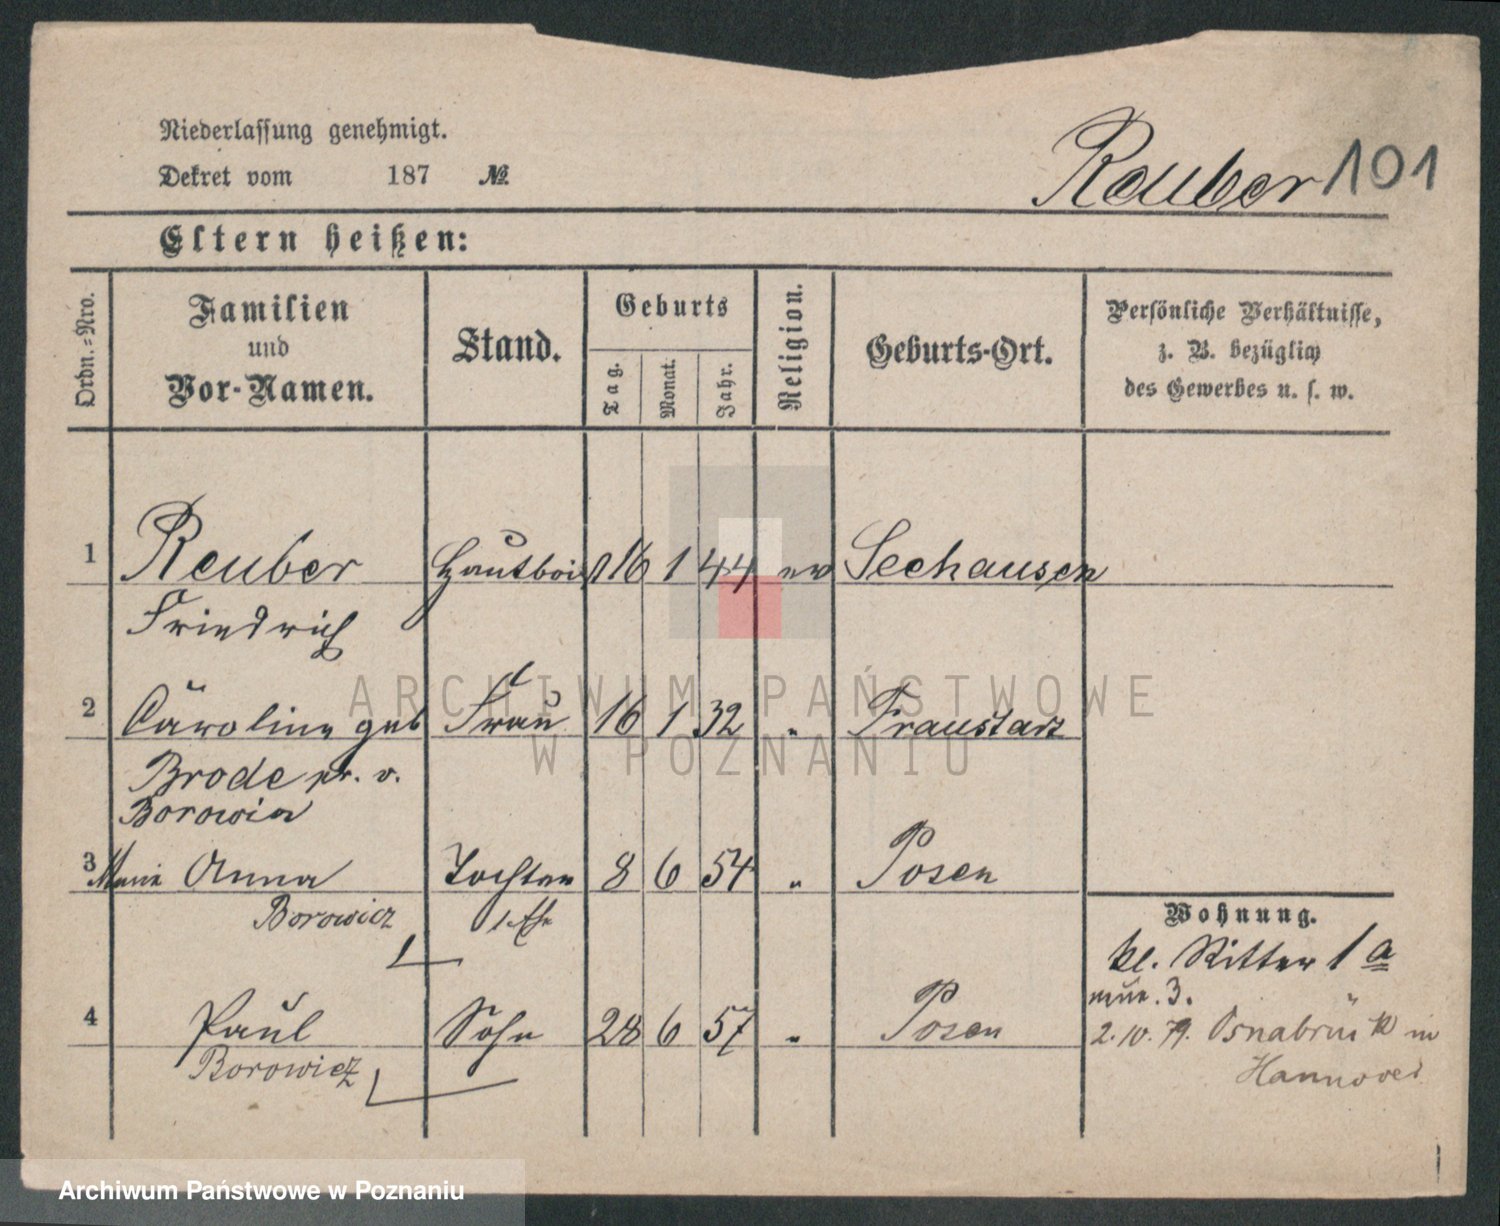 Niederlassung genehmigt.
Dekret vom 187 №
Reuber 101
Eltern heißen:
Ordn.-Nro.
Familien
und
Vor-Namen.
Stand.
Geburts
Tag.
Monat.
Jahr.
Religion.
Geburts-Ort.
Persönliche Verhältnisse,
z. B. bezüglich
des Gewerbes u. s. w.
1 Reuber Hautboist 16 1 44 ev Seehausen
Friedrich
2 Caroline geb Frau 16 1 32 " Fraustadt
Brode pr. v.
Borowicz
3 Marie Anna Tochter 8 6 54 " Posen
Borowicz 1. Ehe
Wohnung.
kl. Ritter 1 a
4 Paul Sohn 28 6 57 " Posen
Borowicz
3.
2.10.79. Osnabrück in
Hannover
ARCHIWUM PAŃSTWOWE
W POZNANIU
Archiwum Państwowe w Poznaniu